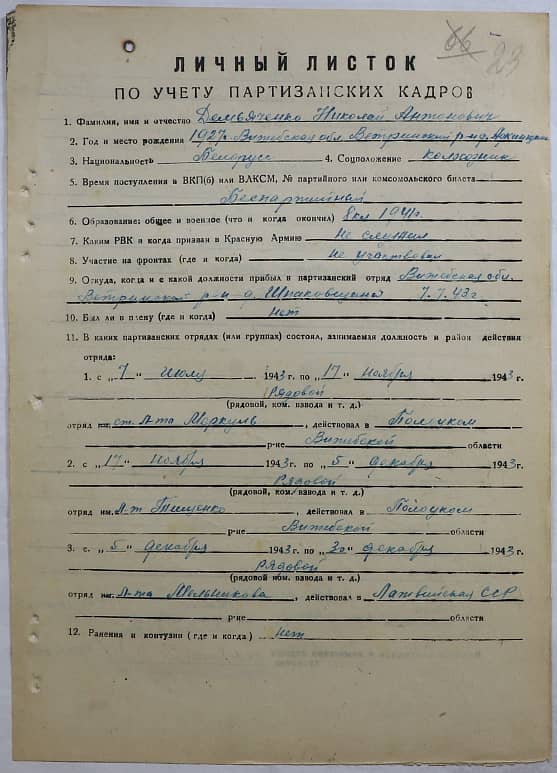 66 23
ЛИЧНЫЙ ЛИСТОК
ПО УЧЕТУ ПАРТИЗАНСКИХ КАДРОВ
1. Фамилия, имя и отчество Демьяченко Николай Антонович
2. Год и место рождения 1927г. Витебская обл. Ветринский р-н д.
3. Национальность Белорусс 4. Соцположение колхозник
5. Время поступления в ВКП(б) или ВЛКСМ, № партийного или комсомольского билета
Беспартийный
6. Образование: общее и военное (что и когда окончил) 8кл 1941г.
7. Каким РВК и когда призван в Красную Армию Не служил
8. Участие на фронтах (где и когда) Не участвовал
9. Откуда, когда и с какой должности прибыл в партизанский отряд Витебская обл.
Ветринский р-н д. Шпаковщина 7.7.43г
10. Был ли в плену (где и когда) Нет
11. В каких партизанских отрядах (или группах) состоял, занимаемая должность и район действия
отряда:
1. с „7" Июля 1943 г. по „17" Ноября 1943 г.
Рядовой
(рядовой, ком. взвода и т. д.)
отряд ст. Л-та Меркуль, действовал в Полоцком
р-не Витебской области
2. с „17" Ноября 1943 г. по „5" декабря 1943 г.
Рядовой
(рядовой, ком. взвода и т. д.)
отряд им. Л-т Тищенко, действовал в Полоцком
р-не Витебской области
3. с „5" декабря 1943 г. по „30" декабря 1943 г.
Рядовой
(рядовой ком. взвода и т. д.)
отряд им. Л-та Мельникова, действовал в Латвийская ССР
р-не области
12. Ранения и контузии (где и когда) Нет